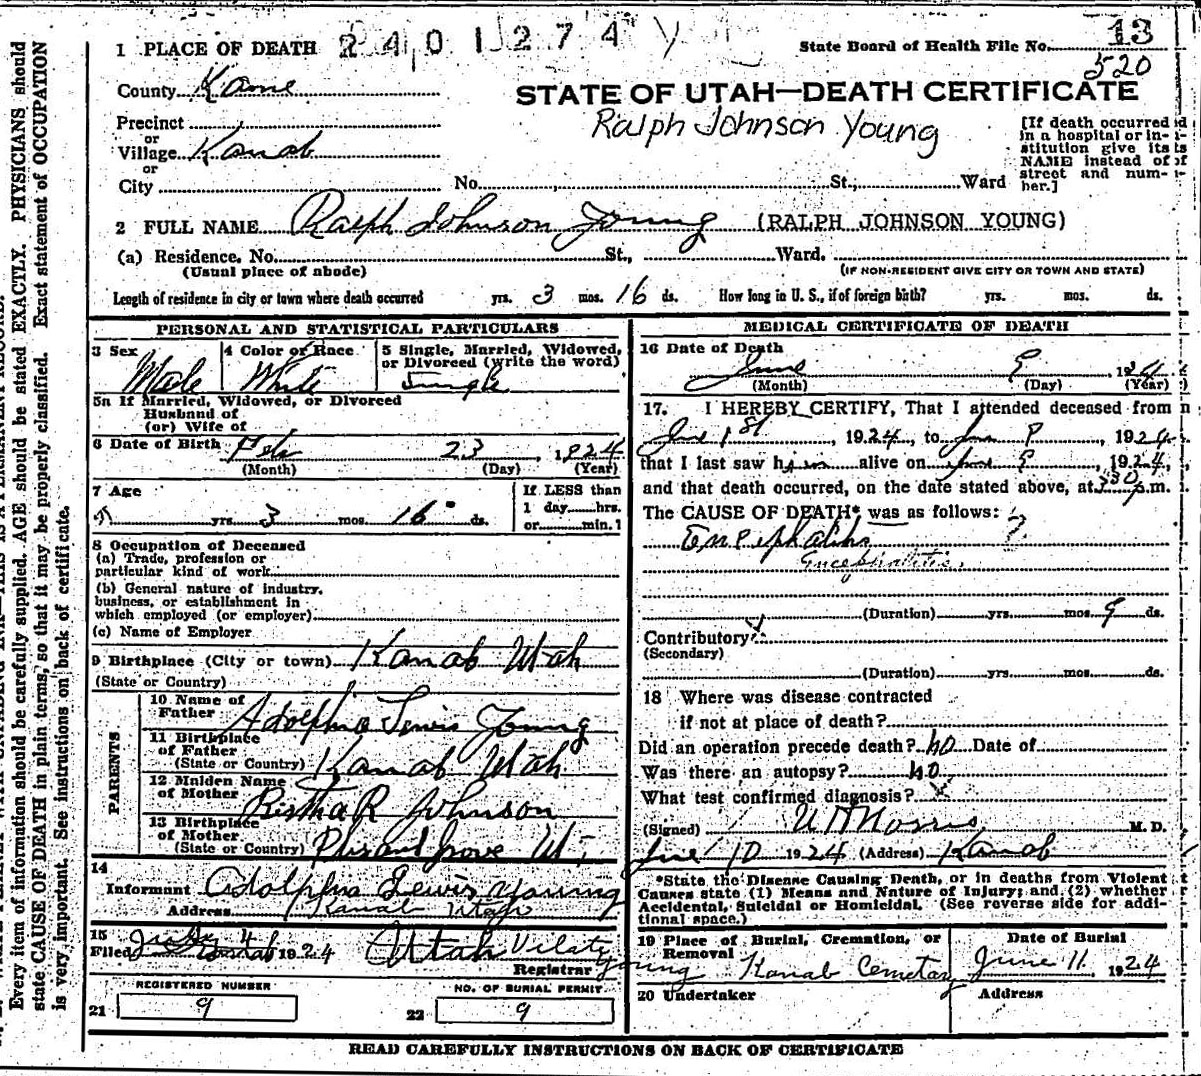 2401274 Y
State Board of Health File No. 13
520
1 PLACE OF DEATH
County Kane
STATE OF UTAH—DEATH CERTIFICATE
Ralph Johnson Young
Precinct
or
Village Kanab
or
City No. , St., Ward
[If death occurred
in a hospital or in-
stitution give its
NAME instead of
street and num-
ber.]
2 FULL NAME Ralph Johnson Young (RALPH JOHNSON YOUNG)
(a) Residence. No. St., Ward.
(Usual place of abode) (IF NON-RESIDENT GIVE CITY OR TOWN AND STATE)
Length of residence in city or town where death occurred yrs. 3 mos. 16 ds. How long in U. S., if of foreign birth? yrs. mos. ds.
PERSONAL AND STATISTICAL PARTICULARS
3 Sex
Male
4 Color or Race
White
5 Single, Married, Widowed,
or Divorced (write the word)
Single
5a If Married, Widowed, or Divorced
Husband of
(or) Wife of
6 Date of Birth Feb 23, 1924
(Month) (Day) (Year)
7 Age
yrs. 3 mos. 16 ds.
If LESS than
1 day hrs.
or min.
8 Occupation of Deceased
(a) Trade, profession or
particular kind of work
(b) General nature of industry,
business, or establishment in
which employed (or employer)
(c) Name of Employer
9 Birthplace (City or town) Kanab Utah
(State or Country)
PARENTS
10 Name of
Father Adolphia Lewis Young
11 Birthplace
of Father
(State or Country) Kanab Utah
12 Maiden Name
of Mother Bertha R Johnson
13 Birthplace
of Mother
(State or Country) Pleasant Grove Ut
14
Informant Adolphia Lewis Young
Address Kanab Utah
15
Filed 1924 Utah Vilate
Registrar Young
REGISTERED NUMBER
21 9
NO. OF BURIAL PERMIT
22 9
MEDICAL CERTIFICATE OF DEATH
16 Date of Death
June 9 1924
(Month) (Day) (Year)
17. I HEREBY CERTIFY, That I attended deceased from
June 1st, 1924, to June 9, 1924,
that I last saw him alive on June 9, 1924,
and that death occurred, on the date stated above, at 330 p.m.
The CAUSE OF DEATH* was as follows:
Encephalitis ?
Encephalitis.
(Duration) yrs. mos. 9 ds.
Contributory
(Secondary)
(Duration) yrs. mos. ds.
18 Where was disease contracted
if not at place of death?
Did an operation precede death? no Date of
Was there an autopsy? no
What test confirmed diagnosis? X
(Signed) Norris M. D.
June 10 1924 (Address) Kanab
*State the Disease Causing Death, or in deaths from Violent
Causes state (1) Means and Nature of Injury; and (2) whether
Accidental, Suicidal or Homicidal. (See reverse side for addi-
tional space.)
19 Place of Burial, Cremation, or
Removal
Kanab Cemetary
Date of Burial
June 11 1924
20 Undertaker Address
READ CAREFULLY INSTRUCTIONS ON BACK OF CERTIFICATE
Every item of information should be carefully supplied. AGE should be stated EXACTLY. PHYSICIANS should
state CAUSE OF DEATH in plain terms, so that it may be properly classified. Exact statement of OCCUPATION
is very important. See instructions on back of certificate.